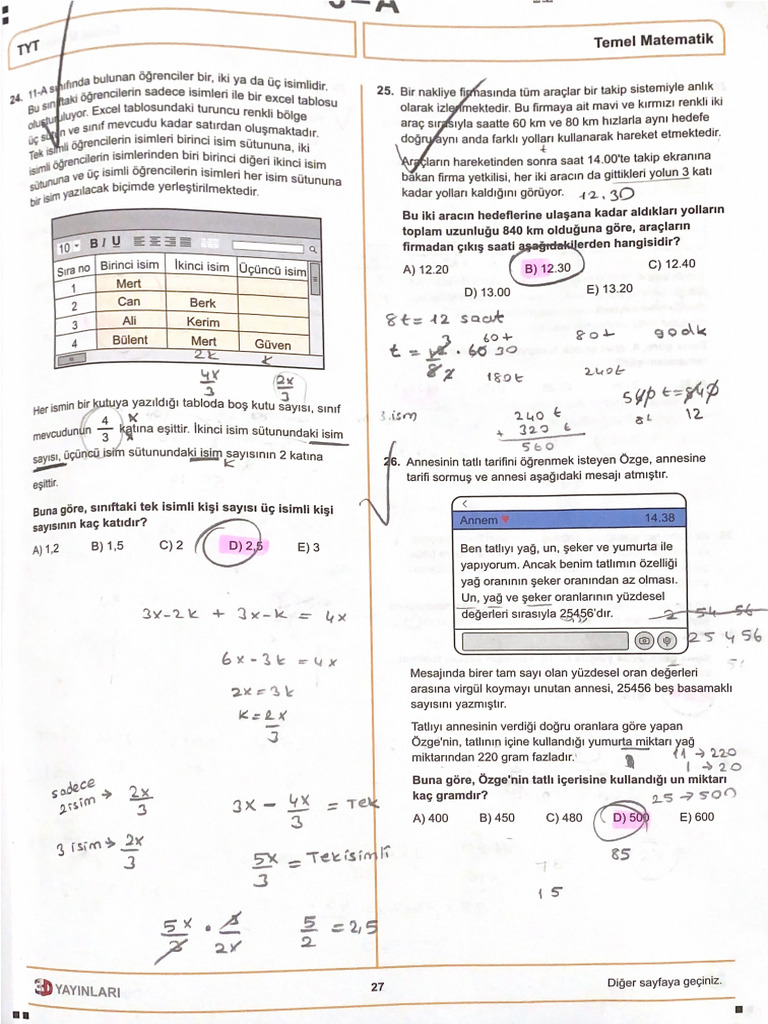 TYT
Temel Matematik
24. 11-A sınıfında bulunan öğrenciler bir, iki ya da üç isimlidir.
Bu sınıftaki öğrencilerin sadece isimleri ile bir excel tablosu
oluşturuluyor. Excel tablosundaki turuncu renkli bölge
üç sütun ve sınıf mevcudu kadar satırdan oluşmaktadır.
Tek isimli öğrencilerin isimleri birinci isim sütununa, iki
isimli öğrencilerin isimlerinden biri birinci diğeri ikinci isim
sütununa ve üç isimli öğrencilerin isimleri her isim sütununa
bir isim yazılacak biçimde yerleştirilmektedir.
10 B I U
Sıra no Birinci isim İkinci isim Üçüncü isim
1 Mert
2 Can Berk
3 Ali Kerim
4 Bülent Mert Güven
2k k
4x/3 2x/3
Her ismin bir kutuya yazıldığı tabloda boş kutu sayısı, sınıf
mevcudunun 4/3 katına eşittir. İkinci isim sütunundaki isim
sayısı, üçüncü isim sütunundaki isim sayısının 2 katına
eşittir.
Buna göre, sınıftaki tek isimli kişi sayısı üç isimli kişi
sayısının kaç katıdır?
A) 1,2 B) 1,5 C) 2 D) 2,5 E) 3
3x-2k + 3x-k = 4x
6x-3k = 4x
2x=3k
k=2x/3
sadece
2isim → 2x/3
3 isim → 2x/3
3x - 4x/3 = Tek
5x/3 = Tekisimli
5x/3 . 3/2x 5/2 = 2,5
25. Bir nakliye firmasında tüm araçlar bir takip sistemiyle anlık
olarak izlenmektedir. Bu firmaya ait mavi ve kırmızı renkli iki
araç sırasıyla saatte 60 km ve 80 km hızlarla aynı hedefe
doğru aynı anda farklı yolları kullanarak hareket etmektedir.
t
Araçların hareketinden sonra saat 14.00'te takip ekranına
bakan firma yetkilisi, her iki aracın da gittikleri yolun 3 katı
kadar yolları kaldığını görüyor. 12.30
Bu iki aracın hedeflerine ulaşana kadar aldıkları yolların
toplam uzunluğu 840 km olduğuna göre, araçların
firmadan çıkış saati aşağıdakilerden hangisidir?
A) 12.20 B) 12.30 C) 12.40
D) 13.00 E) 13.20
8t=12 saat
60t 80t
180t 240t
3.ism
240 t
+ 320 t
560
12
26. Annesinin tatlı tarifini öğrenmek isteyen Özge, annesine
tarifi sormuş ve annesi aşağıdaki mesajı atmıştır.
<
Annem ♥ 14.38
Ben tatlıyı yağ, un, şeker ve yumurta ile
yapıyorum. Ancak benim tatlımın özelliği
yağ oranının şeker oranından az olması.
Un, yağ ve şeker oranlarının yüzdesel
değerleri sırasıyla 25456'dır.
2 54 56
25 4 56
Mesajında birer tam sayı olan yüzdesel oran değerleri
arasına virgül koymayı unutan annesi, 25456 beş basamaklı
sayısını yazmıştır.
Tatlıyı annesinin verdiği doğru oranlara göre yapan
Özge'nin, tatlının içine kullandığı yumurta miktarı yağ
miktarından 220 gram fazladır.
11 → 220
1 → 20
Buna göre, Özge'nin tatlı içerisine kullandığı un miktarı
kaç gramdır?
25 → 500
A) 400 B) 450 C) 480 D) 500 E) 600
85
15
3D YAYINLARI
27
Diğer sayfaya geçiniz.